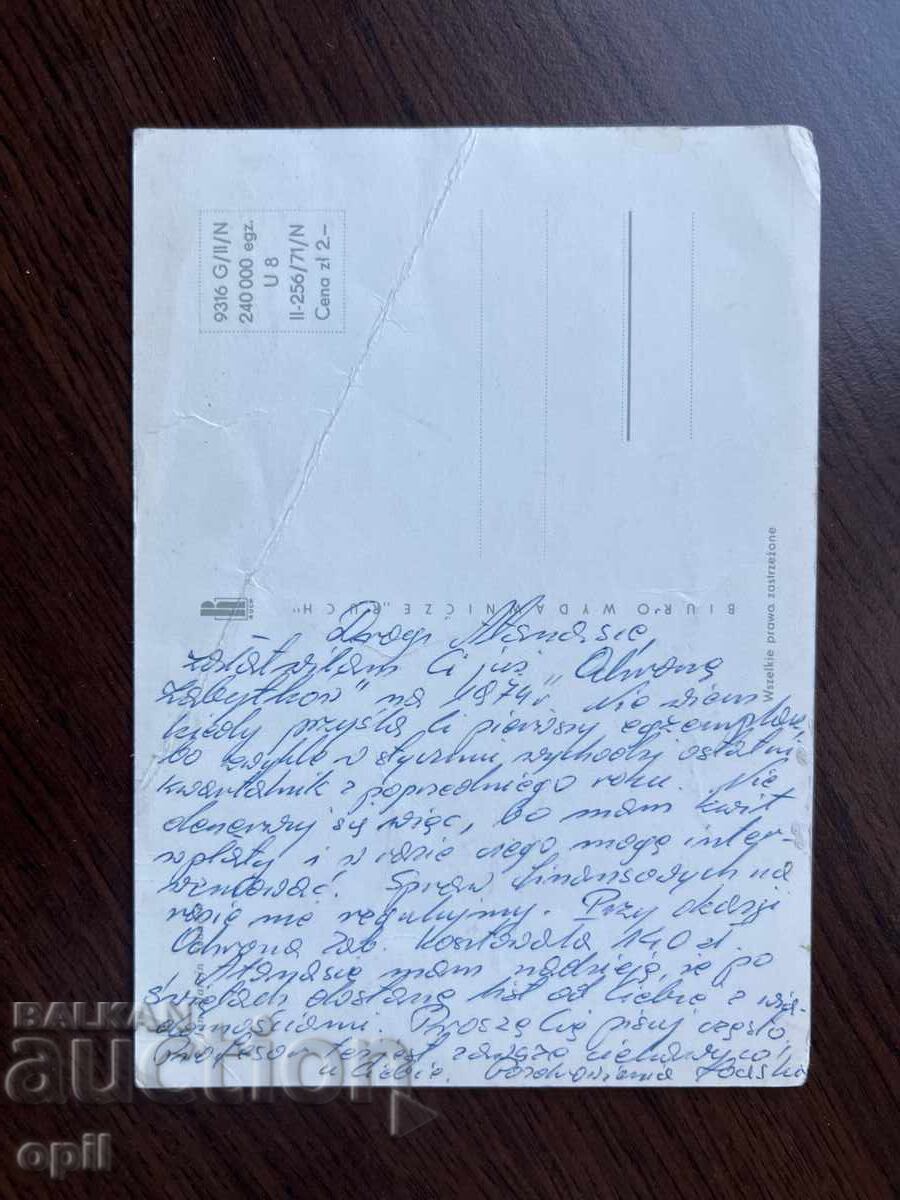 9316 G/II/N
240 000 egz.
U 8
II-256/71/N
Cena zł 2.–
RUCH
BIURO WYDAWNICZE „RUCH"
Wszelkie prawa zastrzeżone
Drogi Atanasie,
załatwiłam Ci już „Ochronę
Zabytków" na 1974 r. Nie wiem
kiedy przyślą Ci pierwszy egzemplarz,
bo zwykle w styczniu wychodzi ostatni
kwartalnik z poprzedniego roku. Nie
denerwuj się więc, bo mam kwit
wpłaty i w razie czego mogę inter-
weniować. Spraw finansowych na
razie nie regulujmy. Przy okazji
Ochrona Zab. kosztowała 140 zł.
Atanasie mam nadzieję, że po
Świętach dostanę list od Ciebie z wia-
domościami. Proszę Cię pisuj często
Profesor też jest zawsze ciekawy co
u Ciebie. Pozdrowienia
BALKAN
auction
opil